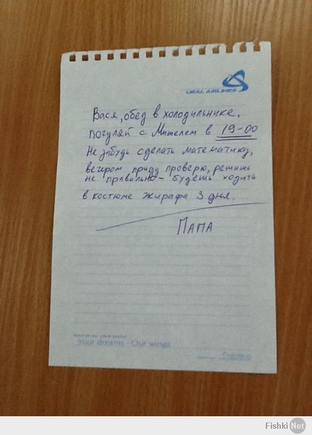 URAL AIRLINES
Вася, обед в холодильнике.
Погуляй с Мишелем в 19-00
Не забудь сделать математику,
вечером приду проверю, решишь
не правильно - будешь ходить
в костюме жирафа 3 дня.
Папа
Your dreams - Our wings
Fishki.Net